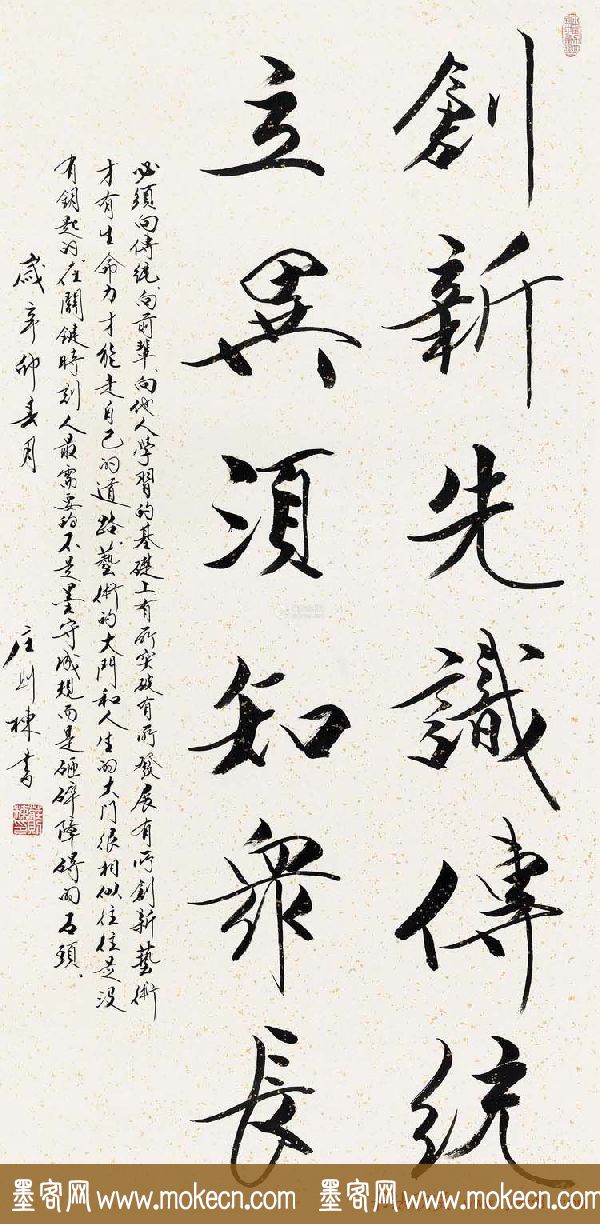 創新先識傳統
立異須知衆長
必須向傳統、向前輩、向他人學習的基礎上有所突破有所發展有所創新藝術
才有生命力才能走自己的道路藝術的大門和人生的大门很相似往往是没
有鑰匙的在關鍵時刻人最需要的不是墨守成規而是砸碎障碍的石頭.
歲辛卯春月 庄则棟書
墨客网www.mokecn.com 墨客网www.mokecn.com